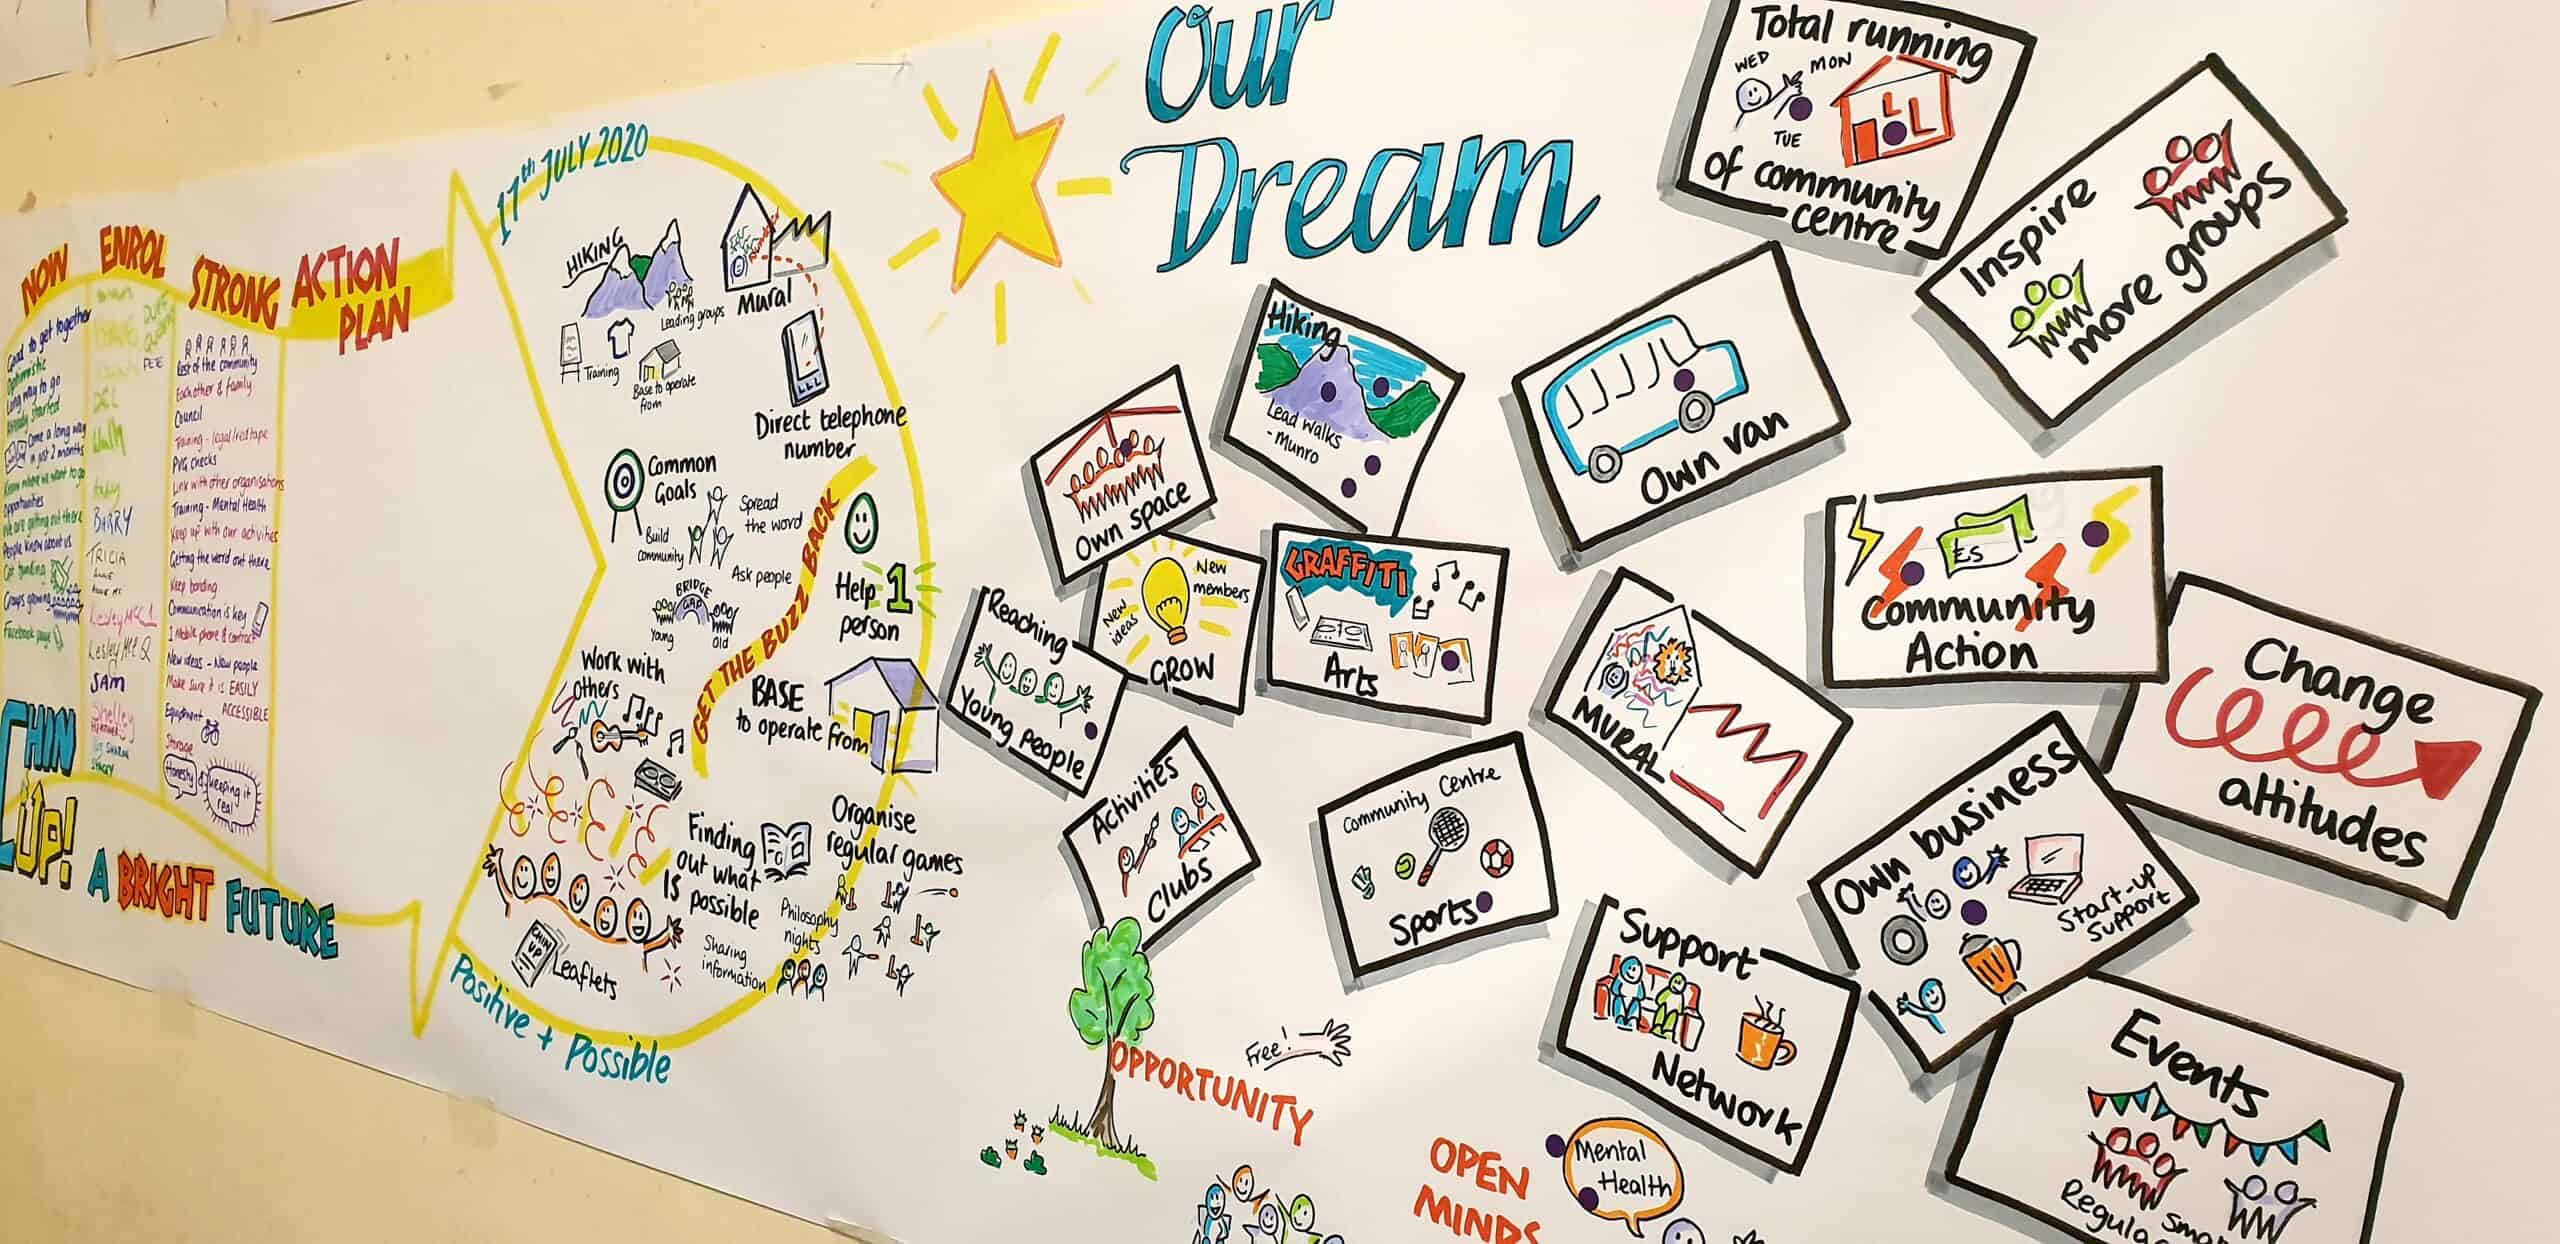 Our
Dream
NOW
Good to get together
Optimistic
Long way to go
Already started
Come a long way
in just 2 months
Know where we want to go
Opportunities
We are getting out there
People know about us
Got funding
Groups growing
Facebook page
ENROL
DEL
PETE
BARRY
TRICIA
Lesley
Lesley
SAM
Shelley
STRONG
Rest of the community
Each other & family
Council
Training - legal/red tape
PVG checks
Link with other organisations
Training - Mental Health
Keep up with our activities
Getting the word out there
Keep bonding
Communication is key
1 Mobile phone & contract
New ideas - New people
Make sure it is EASILY
ACCESSIBLE
Equipment
Storage
Honesty
& keeping it
real
ACTION
PLAN
CHIN
UP!
A BRIGHT FUTURE
17th JULY 2020
HIKING
Leading groups
Training
Base to operate
from
Mural
Direct telephone
number
Common
Goals
Build
community
Spread
the word
Ask people
BRIDGE
GAP
Young
Old
GET THE BUZZ BACK
Help 1
person
Work with
others
BASE
to operate from
Finding
out what
IS possible
Organise
regular games
Philosophy
nights
Sharing
information
CHIN
UP
Leaflets
Positive + Possible
Total running
WED
MON
TUE
of community
centre
Inspire
more groups
Hiking
Lead walks
- Munro
Own van
Own space
New
members
New
ideas
GROW
GRAFFITI
Arts
Reaching
Young people
MURAL
£s
Community
Action
Change
attitudes
Activities
Clubs
Community Centre
Sports
Own business
Start-up
Support
Support
Network
Events
Regula
OPPORTUNITY
Free!
OPEN
MINDS
Mental
Health